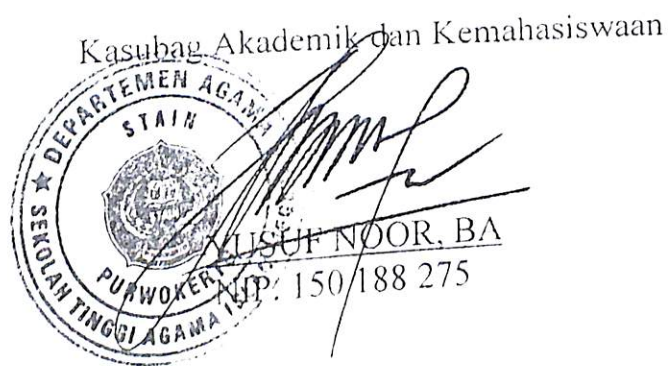 Kasubag Akademik dan Kemahasiswaan
DEPARTEMEN AGAMA
STAIN
PURWOKERTO
SEKOLAH TINGGI AGAMA
YUSUF NOOR, BA
NIP. 150 188 275